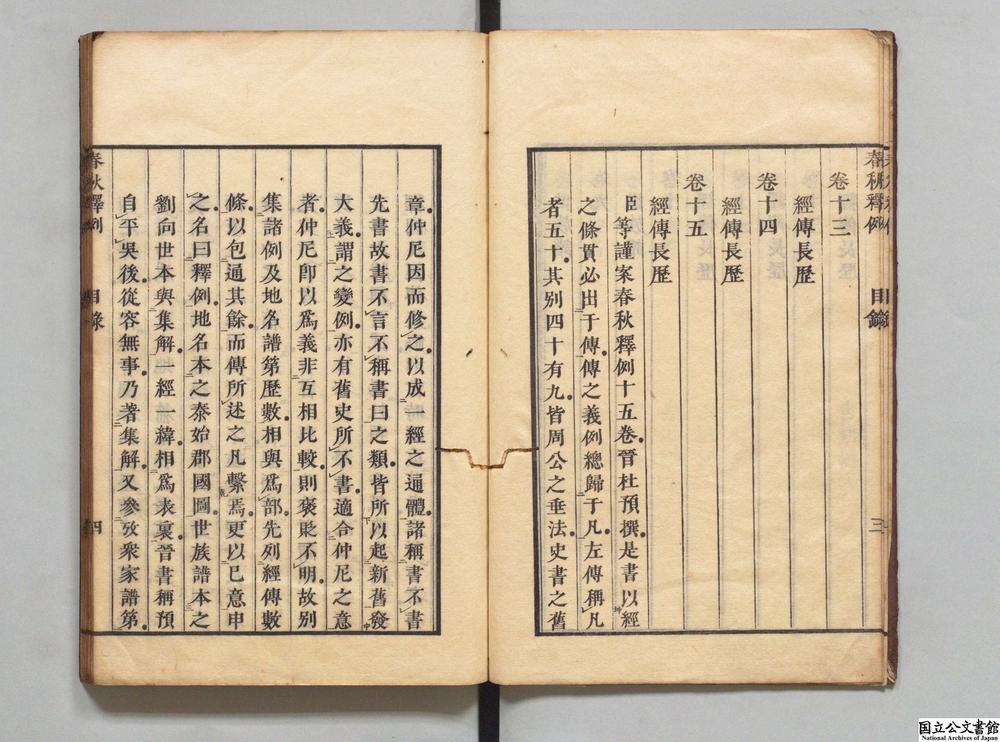 春秋釋例
目錄
三
卷十三
經傳長歷
卷十四
經傳長歷
卷十五
經傳長歷
臣等謹案春秋釋例十五卷晉杜預撰是書以經
之條貫必出于傳傳之義例總歸于凡左傳稱凡
者五十其別四十有九皆周公之垂法史書之舊
章仲尼因而修之以成一經之通體諸稱書不書
先書故書不言不稱書曰之類皆所以起新舊發
大義謂之變例亦有舊史所不書適合仲尼之意
者仲尼卽以爲義非互相比較則褒貶不明故別
集諸例及地名譜第歷數相與爲部先列經傳數
條以包通其餘而傳所述之凡繫焉更以已意申
之名曰釋例地名本之泰始郡國圖世族譜本之
劉向世本與集解一經一緯相爲表裏晉書稱預
自平吳後從容無事乃著集解又參攷衆家譜第
春秋釋例
目錄
四
国立公文書館
National Archives of Japan